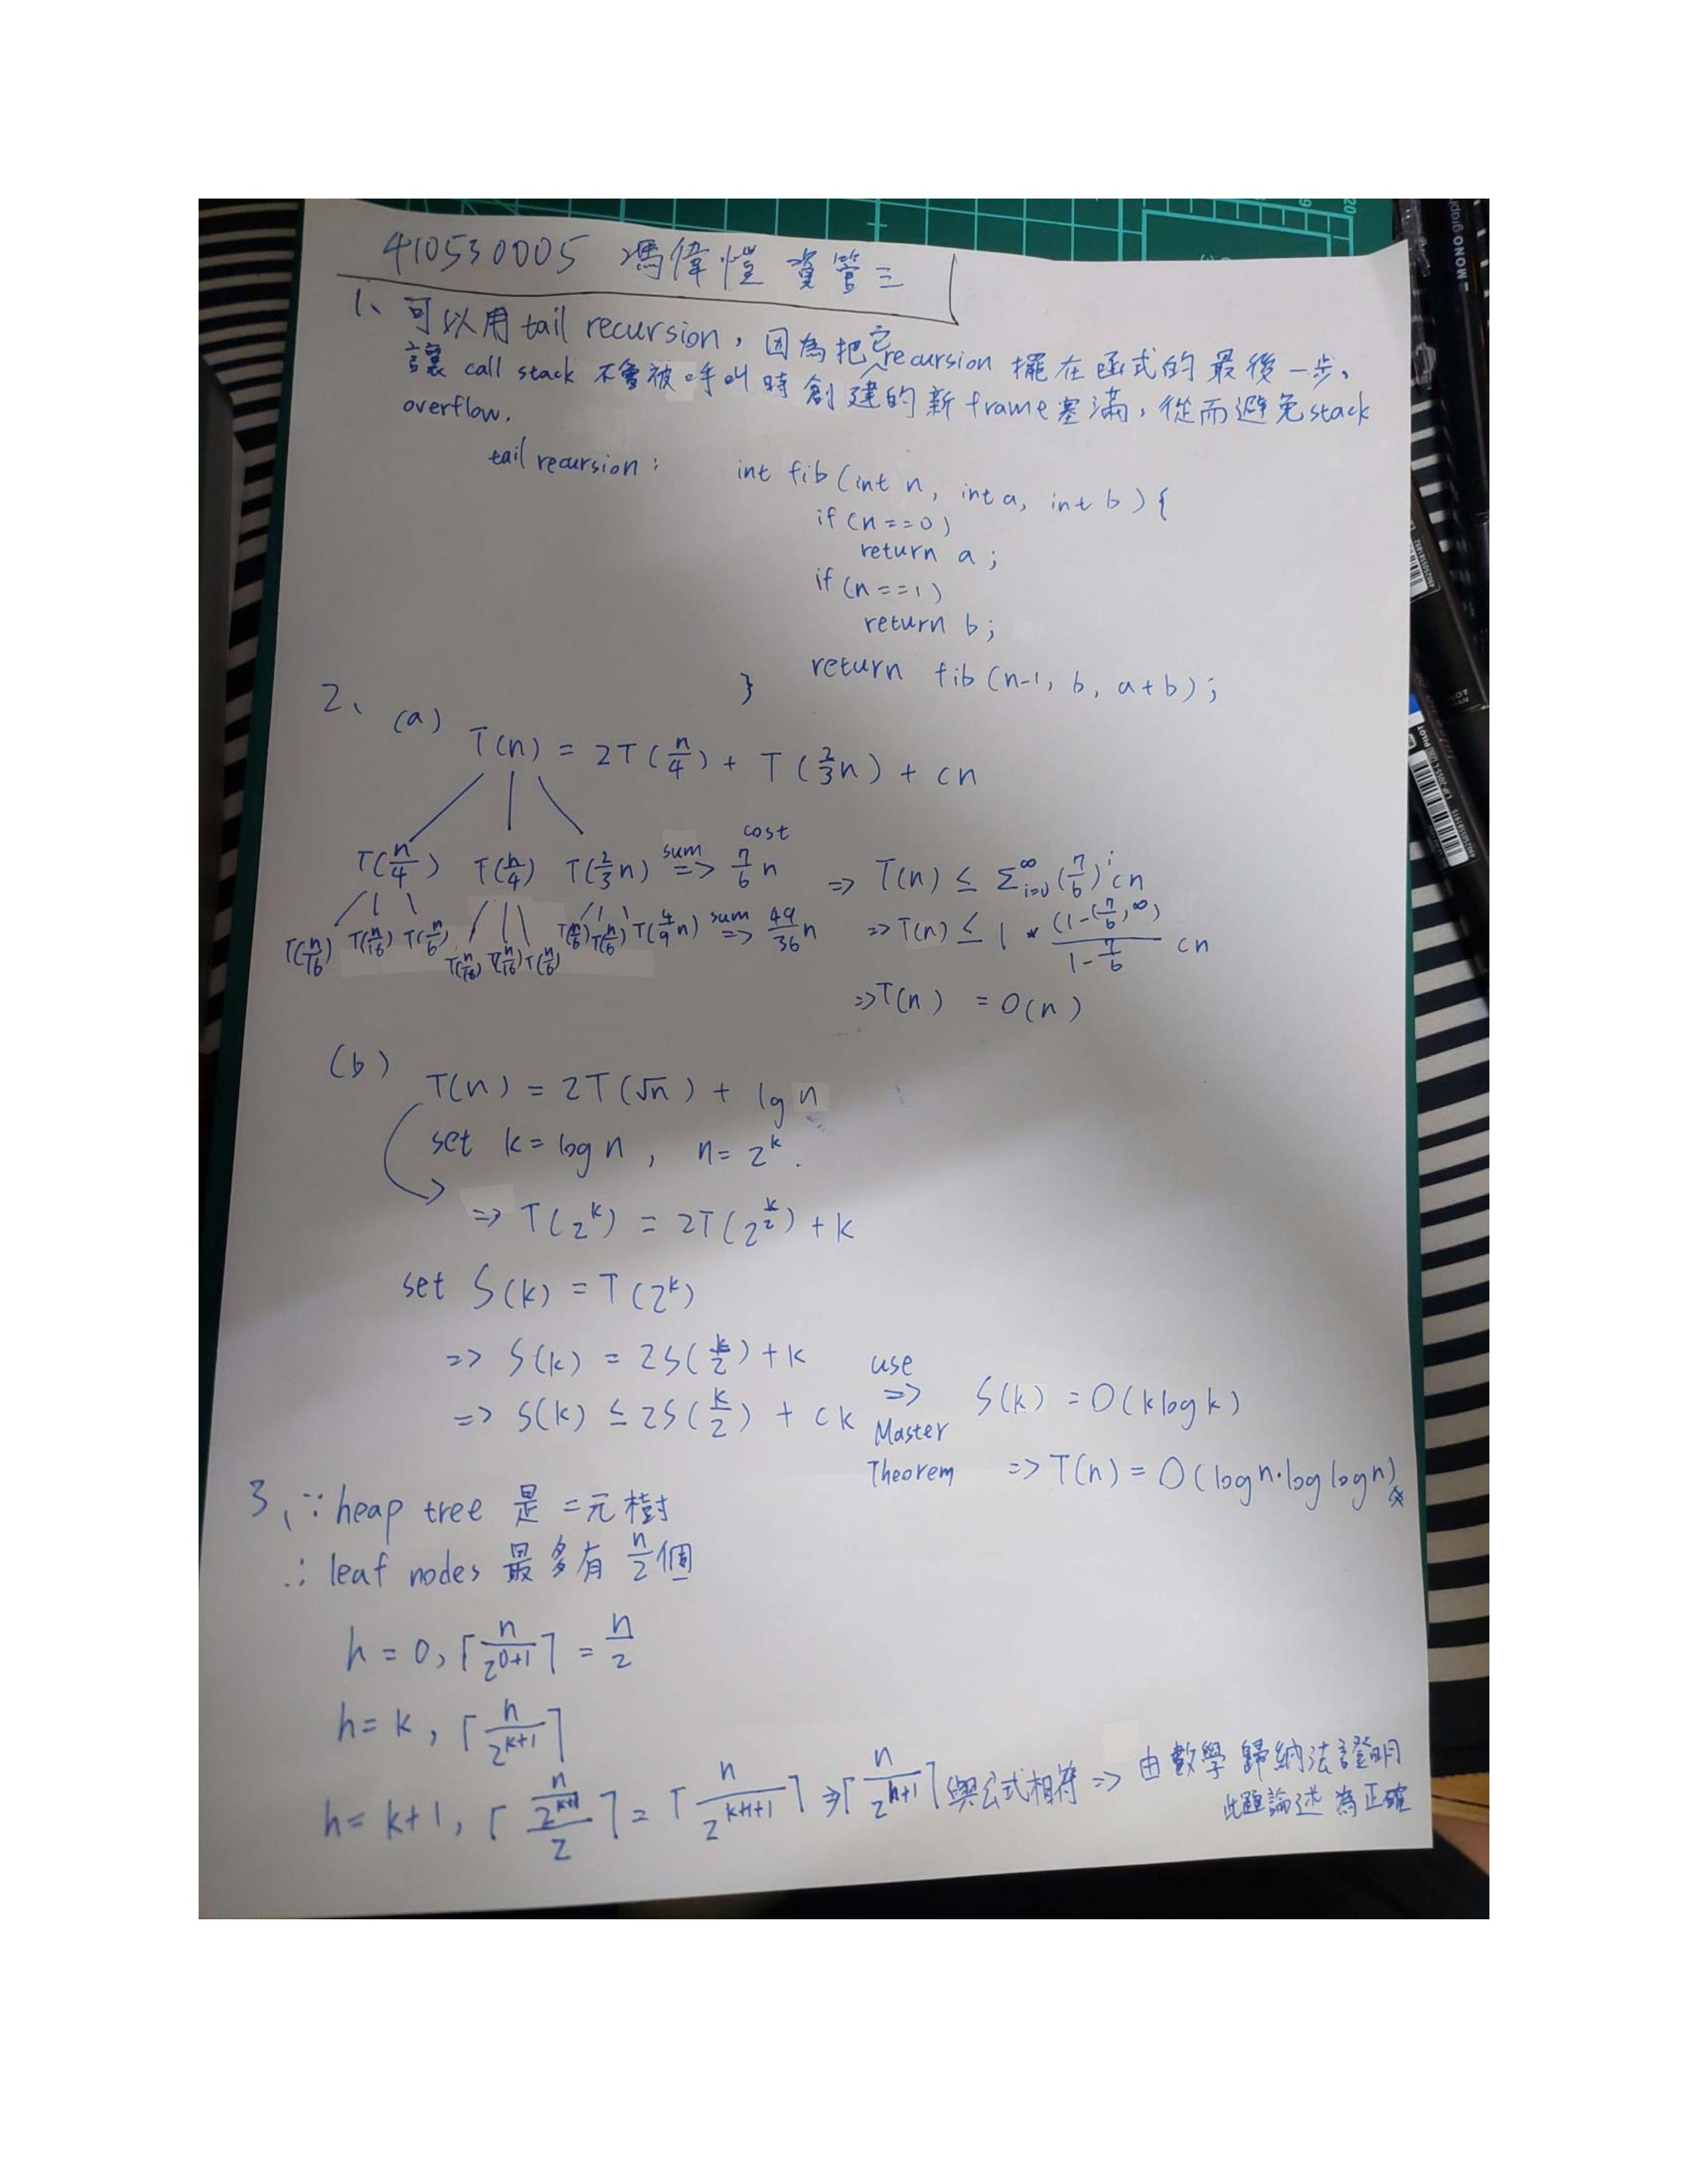 410530005 馮偉愷 資管三
1、可以用 tail recursion，因為把它 recursion 擺在函式的最後一步，
讓 call stack 不會被呼叫時創建的新 frame 塞滿，從而避免 stack
overflow.
tail recursion: int fib (int n, int a, int b) {
if (n==0)
return a;
if (n==1)
return b;
return fib (n-1, b, a+b);
}
2、(a) T(n) = 2T(n/4) + T(2/3 n) + cn
cost
T(n/4) T(n/4) T(2/3 n) sum => 7/6 n => T(n) ≤ Σ_{i=0}^{∞} (7/6)^i cn
T(n/16) T(n/16) T(n/6) T(n/16) T(n/16) T(n/6) T(n/6) T(n/6) T(4/9 n) sum => 49/36 n => T(n) ≤ 1 * (1-(7/6)^∞)/(1-7/6) cn
=> T(n) = O(n)
(b) T(n) = 2T(√n) + lg n
set k = log n, n = 2^k.
=> T(2^k) = 2T(2^{k/2}) + k
set S(k) = T(2^k)
=> S(k) = 2S(k/2) + k
=> S(k) ≤ 2S(k/2) + ck use => Master Theorem S(k) = O(k log k)
=> T(n) = O(log n · log log n)
3、∵ heap tree 是二元樹
∴ leaf nodes 最多有 n/2 個
h = 0, ⌈n/2^{0+1}⌉ = n/2
h = k, ⌈n/2^{k+1}⌉
h = k+1, ⌈(n/2^{k+1})/2⌉ = ⌈n/2^{k+1+1}⌉ => ⌈n/2^{h+1}⌉ 與公式相符 => 由數學歸納法證明
此題論述為正確
MONO graph
PILOT